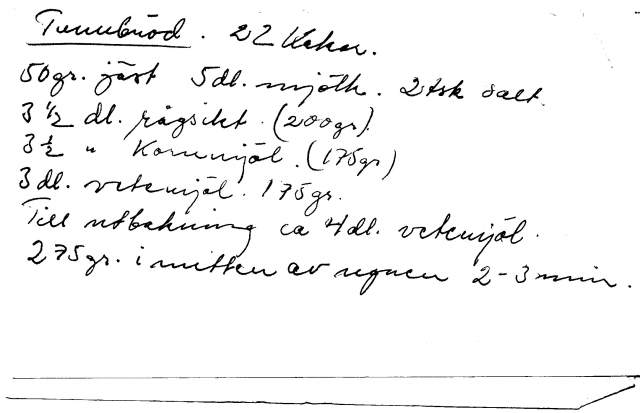 Tunnbröd. 22 Kakor.
50gr. jäst 5dl. mjölk. 2tsk salt.
3 1/2 dl. rågsikt. (200gr).
3 1/2 " Kornmjöl. (175gr)
3dl. vetemjöl. 175gr.
Till utbakning ca 4dl. vetemjöl.
275gr. i mitten av ugnen 2-3 min.